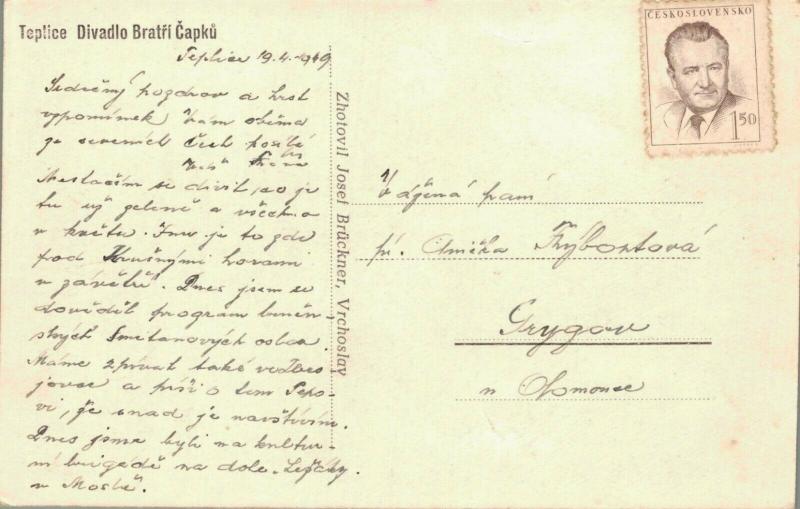 Teplice Divadlo Bratří Čapků
Teplice 19.4.1949
Srdečný pozdrav a hrst
vzpomínek Vám oběma
ze severních Čech posílá
Váš
Nestačím se divit, co je
tu už zeleně a všechno
v květu. Inu je to zde
pod Krušnými horami
v závětří. Dnes jsem se
dověděl program
Smetanových oslav.
Máme zpívat také v
a píši o tom Pepo-
vi, že snad je navštívím.
Dnes jsme byli na kultur-
ní brigádě na dole Ležáky
v Mostě.
Zhotovil Josef Brückner, Vrchoslav
ČESKOSLOVENSKO
1.50
Vážená paní
pí. Anička
Grygov
u Olomouce